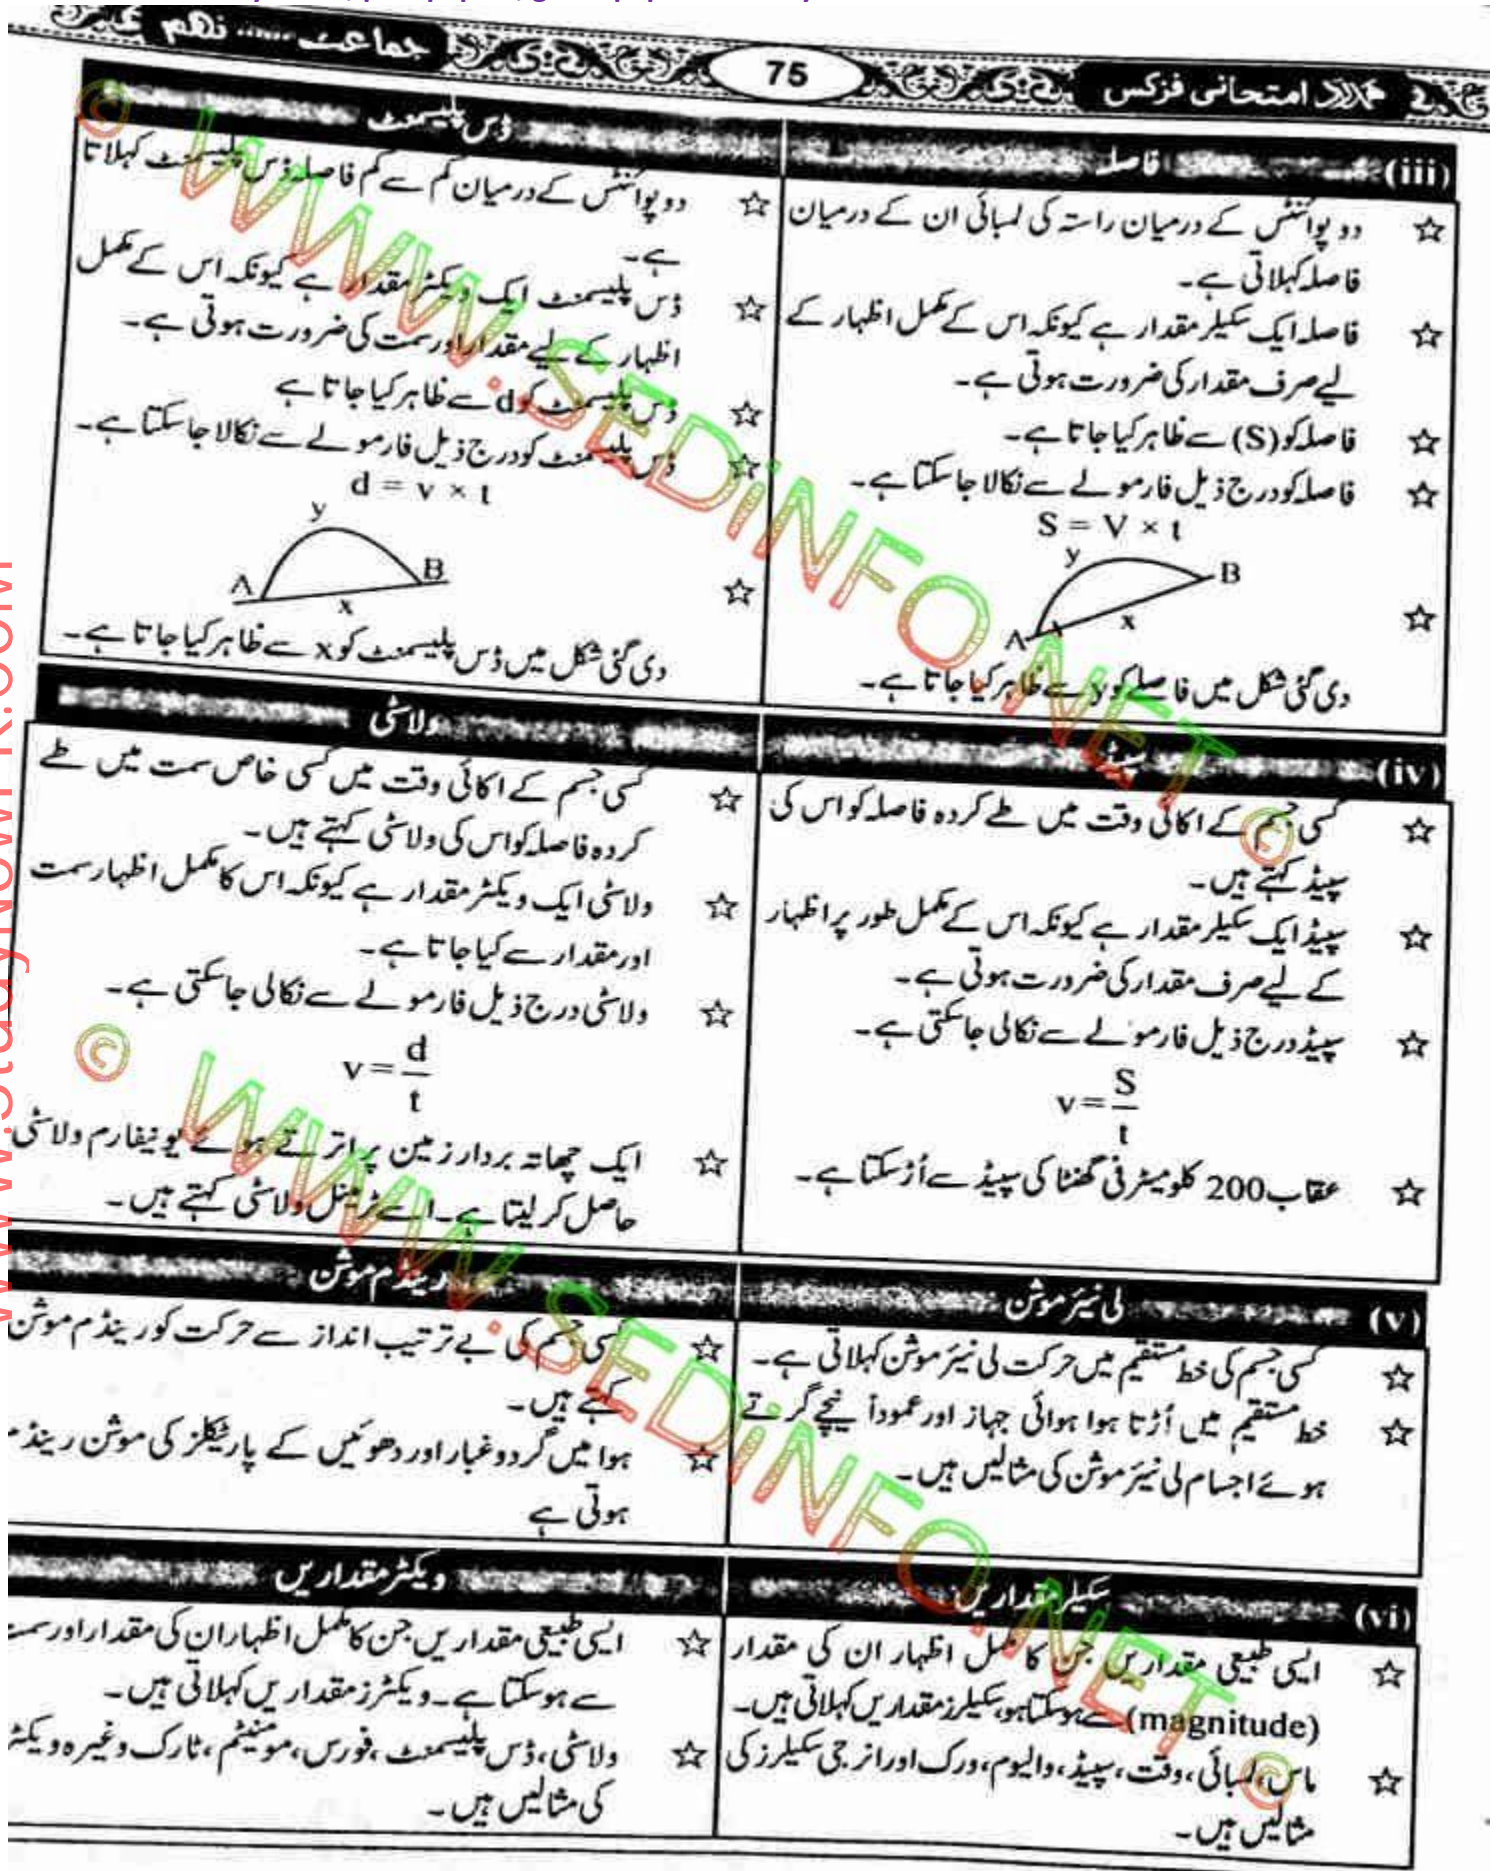 امتحانی فزکس
75
جماعت ...... نہم
(iii) فاصلہ
☆ دو پوائنٹس کے درمیان راستہ کی لمبائی ان کے درمیان
فاصلہ کہلاتی ہے۔
☆ فاصلہ ایک سکیلر مقدار ہے کیونکہ اس کے مکمل اظہار کے
لیے صرف مقدار کی ضرورت ہوتی ہے۔
☆ فاصلہ کو (S) سے ظاہر کیا جاتا ہے۔
☆ فاصلہ کو درج ذیل فارمولے سے نکالا جا سکتا ہے۔
S = V × t
y
B
x
A
☆
دی گئی شکل میں فاصلے کو y سے ظاہر کیا جاتا ہے۔
ڈس پلیسمنٹ
☆ دو پوائنٹس کے درمیان کم سے کم فاصلہ ڈس پلیسمنٹ کہلاتا
ہے۔
☆ ڈس پلیسمنٹ ایک ویکٹر مقدار ہے کیونکہ اس کے مکمل
اظہار کے لیے مقدار اور سمت کی ضرورت ہوتی ہے۔
☆ ڈس پلیسمنٹ کو d سے ظاہر کیا جاتا ہے
☆ ڈس پلیسمنٹ کو درج ذیل فارمولے سے نکالا جا سکتا ہے۔
d = v × t
y
A
B
x
☆
دی گئی شکل میں ڈس پلیسمنٹ کو x سے ظاہر کیا جاتا ہے۔
(iv) سپیڈ
☆ کسی جسم کے اکائی وقت میں طے کردہ فاصلہ کو اس کی
سپیڈ کہتے ہیں۔
☆ سپیڈ ایک سکیلر مقدار ہے کیونکہ اس کے مکمل طور پر اظہار
کے لیے صرف مقدار کی ضرورت ہوتی ہے۔
☆ سپیڈ درج ذیل فارمولے سے نکالی جا سکتی ہے۔
v = S/t
☆ عقاب 200 کلومیٹر فی گھنٹا کی سپیڈ سے اُڑ سکتا ہے۔
ولاسٹی
☆ کسی جسم کے اکائی وقت میں کسی خاص سمت میں طے
کردہ فاصلہ کو اس کی ولاسٹی کہتے ہیں۔
☆ ولاسٹی ایک ویکٹر مقدار ہے کیونکہ اس کا مکمل اظہار سمت
اور مقدار سے کیا جاتا ہے۔
☆ ولاسٹی درج ذیل فارمولے سے نکالی جا سکتی ہے۔
v = d/t
☆ ایک چھاتہ بردار زمین پر اترتے ہوئے یونیفارم ولاسٹی
حاصل کر لیتا ہے۔ اسے ٹرمینل ولاسٹی کہتے ہیں۔
(v) لی نیئر موشن
☆ کسی جسم کی خط مستقیم میں حرکت لی نیئر موشن کہلاتی ہے۔
☆ خط مستقیم میں اُڑتا ہوا ہوائی جہاز اور عموداً نیچے گرتے
ہوئے اجسام لی نیئر موشن کی مثالیں ہیں۔
رینڈم موشن
☆ کسی جسم کی بے ترتیب انداز سے حرکت کو رینڈم موشن
کہتے ہیں۔
☆ ہوا میں گرد و غبار اور دھوئیں کے پارٹیکلز کی موشن رینڈم
ہوتی ہے
(vi) سکیلر مقداریں
☆ ایسی طبیعی مقداریں جن کا مکمل اظہار ان کی مقدار
(magnitude) سے ہو سکتا ہو، سکیلرز مقداریں کہلاتی ہیں۔
☆ ماس، لمبائی، وقت، سپیڈ، والیوم، ورک اور انرجی سکیلرز کی
مثالیں ہیں۔
ویکٹر مقداریں
☆ ایسی طبیعی مقداریں جن کا مکمل اظہار ان کی مقدار اور سمت
سے ہو سکتا ہے۔ ویکٹرز مقداریں کہلاتی ہیں۔
☆ ولاسٹی، ڈس پلیسمنٹ، فورس، مومینٹم، ٹارک وغیرہ ویکٹر
کی مثالیں ہیں۔
© WWW.SEDiNFO.NET ©
© WWW.SEDiNFO.NET ©
www.StudyNowPK.COM